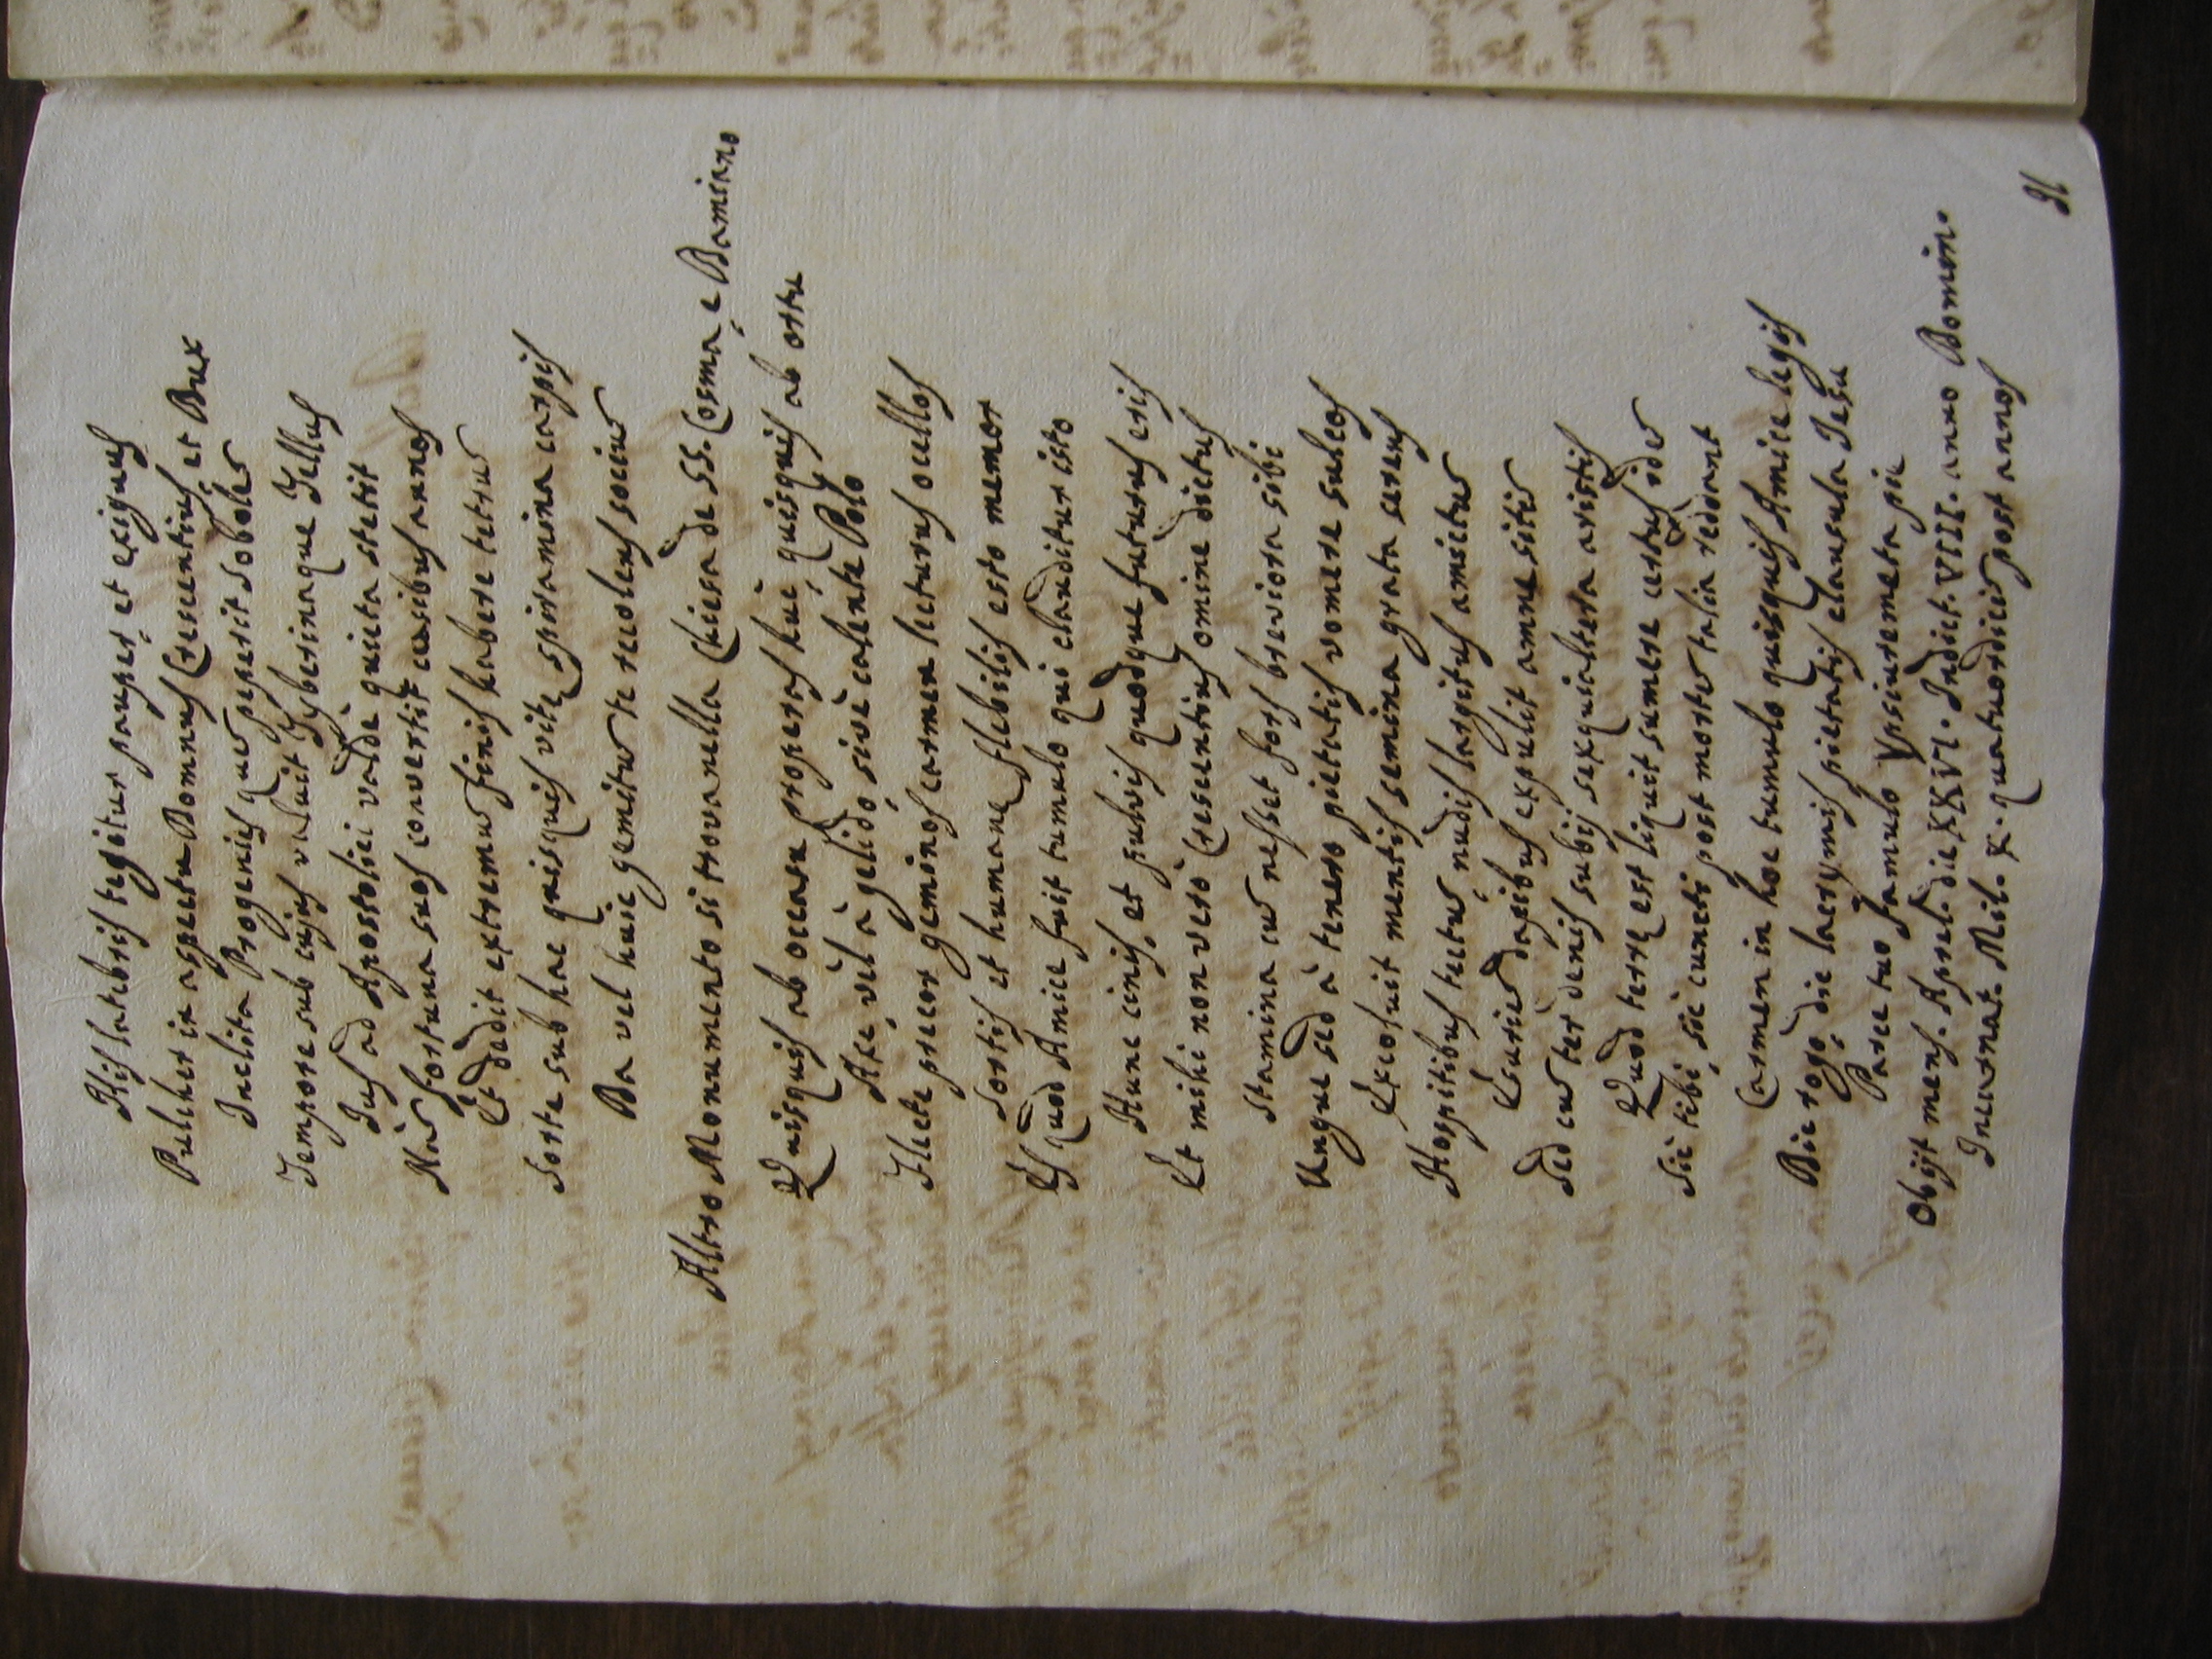 His latebris tegitur pauper et exiguus
Pulcher in aspectu Domnus Crescentius, et Dux
Inclita Progenies quem peperit soboles
Tempore sub cujus valuit Tyberinaque Tellus
Jus ad Apostolici valdè quieta stetit
Nam fortuna suos convertit casibus annos
Et dedit extremum finis habere tetrum
Sorte sub hac quisquis vitę spiramina carpis
Da vel huic gemitum te recolens socium
Altro Monumento si trova nella Chiesa de SS. Cosma, e Damiano
Quisquis ab occasu properas huc, quisquis ab ortu
Axe, vel à gelido, sivè calente Polo
Flecte precor geminos carmen lecturus ocellos
Sortis et humanę flebilis esto memor
Es quod Amice fuit tumulo qui clauditur isto
Hunc cinis, et pulvis quodque futurus eris
Et mihi non verò Crescentius omine dictus
Stamina cum nesset fors breviora sibi
Ungue sed à tenero pietatis vomere sulcos
Excoluit mentis semina grata serens
Hospitibus tectum, nudis largitus amictum
Esuriem dapibus expulit amne sitim
Sed cum ter denis subijs sexquialtera aristis
Quod terrę est liquit sumere certus idem
Sic tibi, sic cuncti post mortem talia reddant
Carmen in hoc tumulo quisquis Amice legis
Dic rogo, dic lacrymis pietatis clausula Jesu
Parce tuo famulo Ypsiuremeta piu
Obijt mens. Aprel. die XXVI. Indict. VIII. anno Domin.
Incarnat. Mil. X. quatuordicim post annos
91